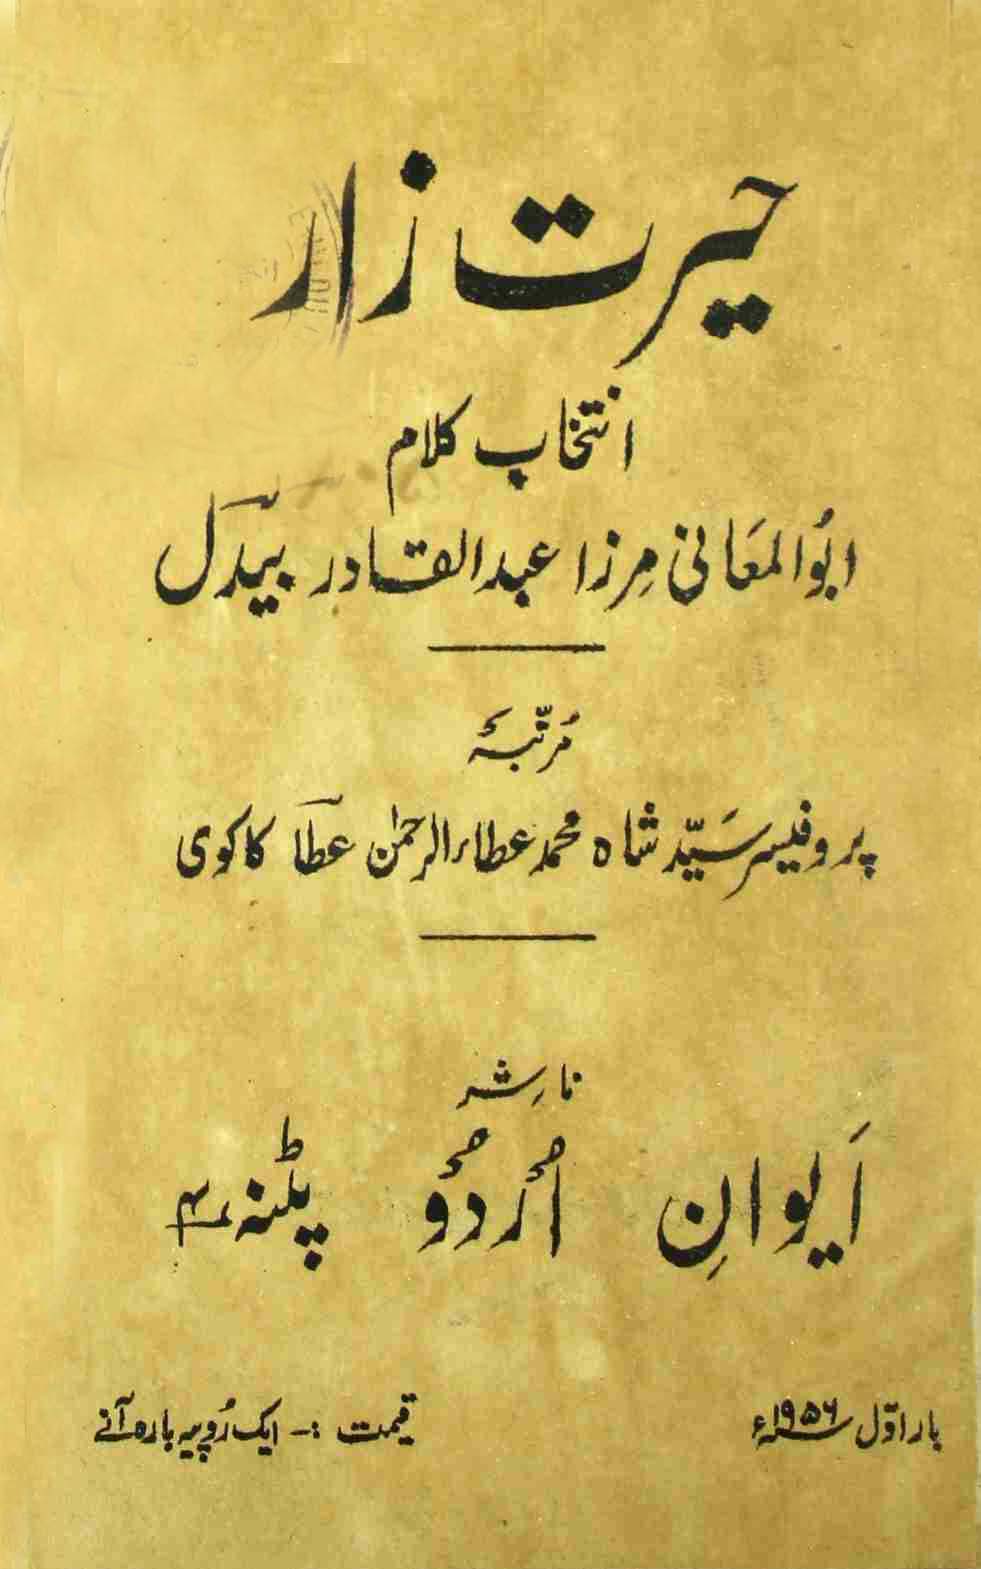 حیرت زار
انتخاب کلام
ابُوالمعَانی مِرزا عبدالقادر بیدلؔ
مُرتّبہٗ
پروفیسر سَیّد شاہ محمد عطاءالرحمٰن عطاؔ کاکوی
نارِشر
اَیوانِ اُردُو پٹنہ ۴
بار اوّل ۱۹۵۶ء
قیمت :- ایک رُوپیہ بارہ آنے